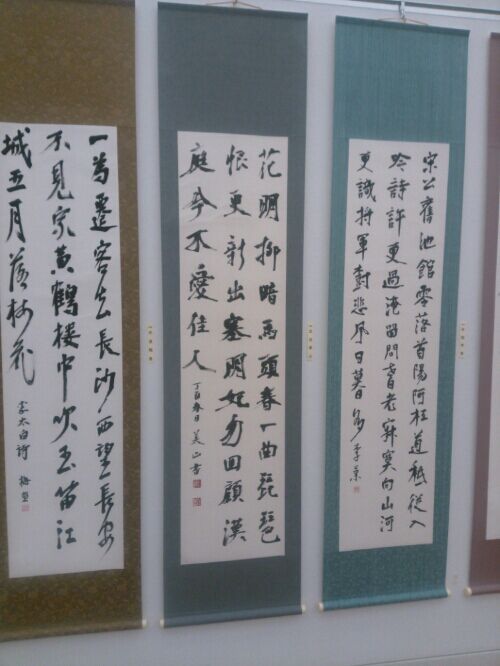 宋公舊池館零落首陽阿枉道祗從入
吟詩許更過淹留問耆老寂寞向山河
更識將軍樹悲風日暮多 李景
花明柳暗馬頭春一曲琵琶
恨更新出塞明妃勿回顧漢
庭今不愛佳人
春日美山書
一為遷客去長沙西望長安
不見家黃鶴樓中吹玉笛江
城五月落梅花
李太白詩